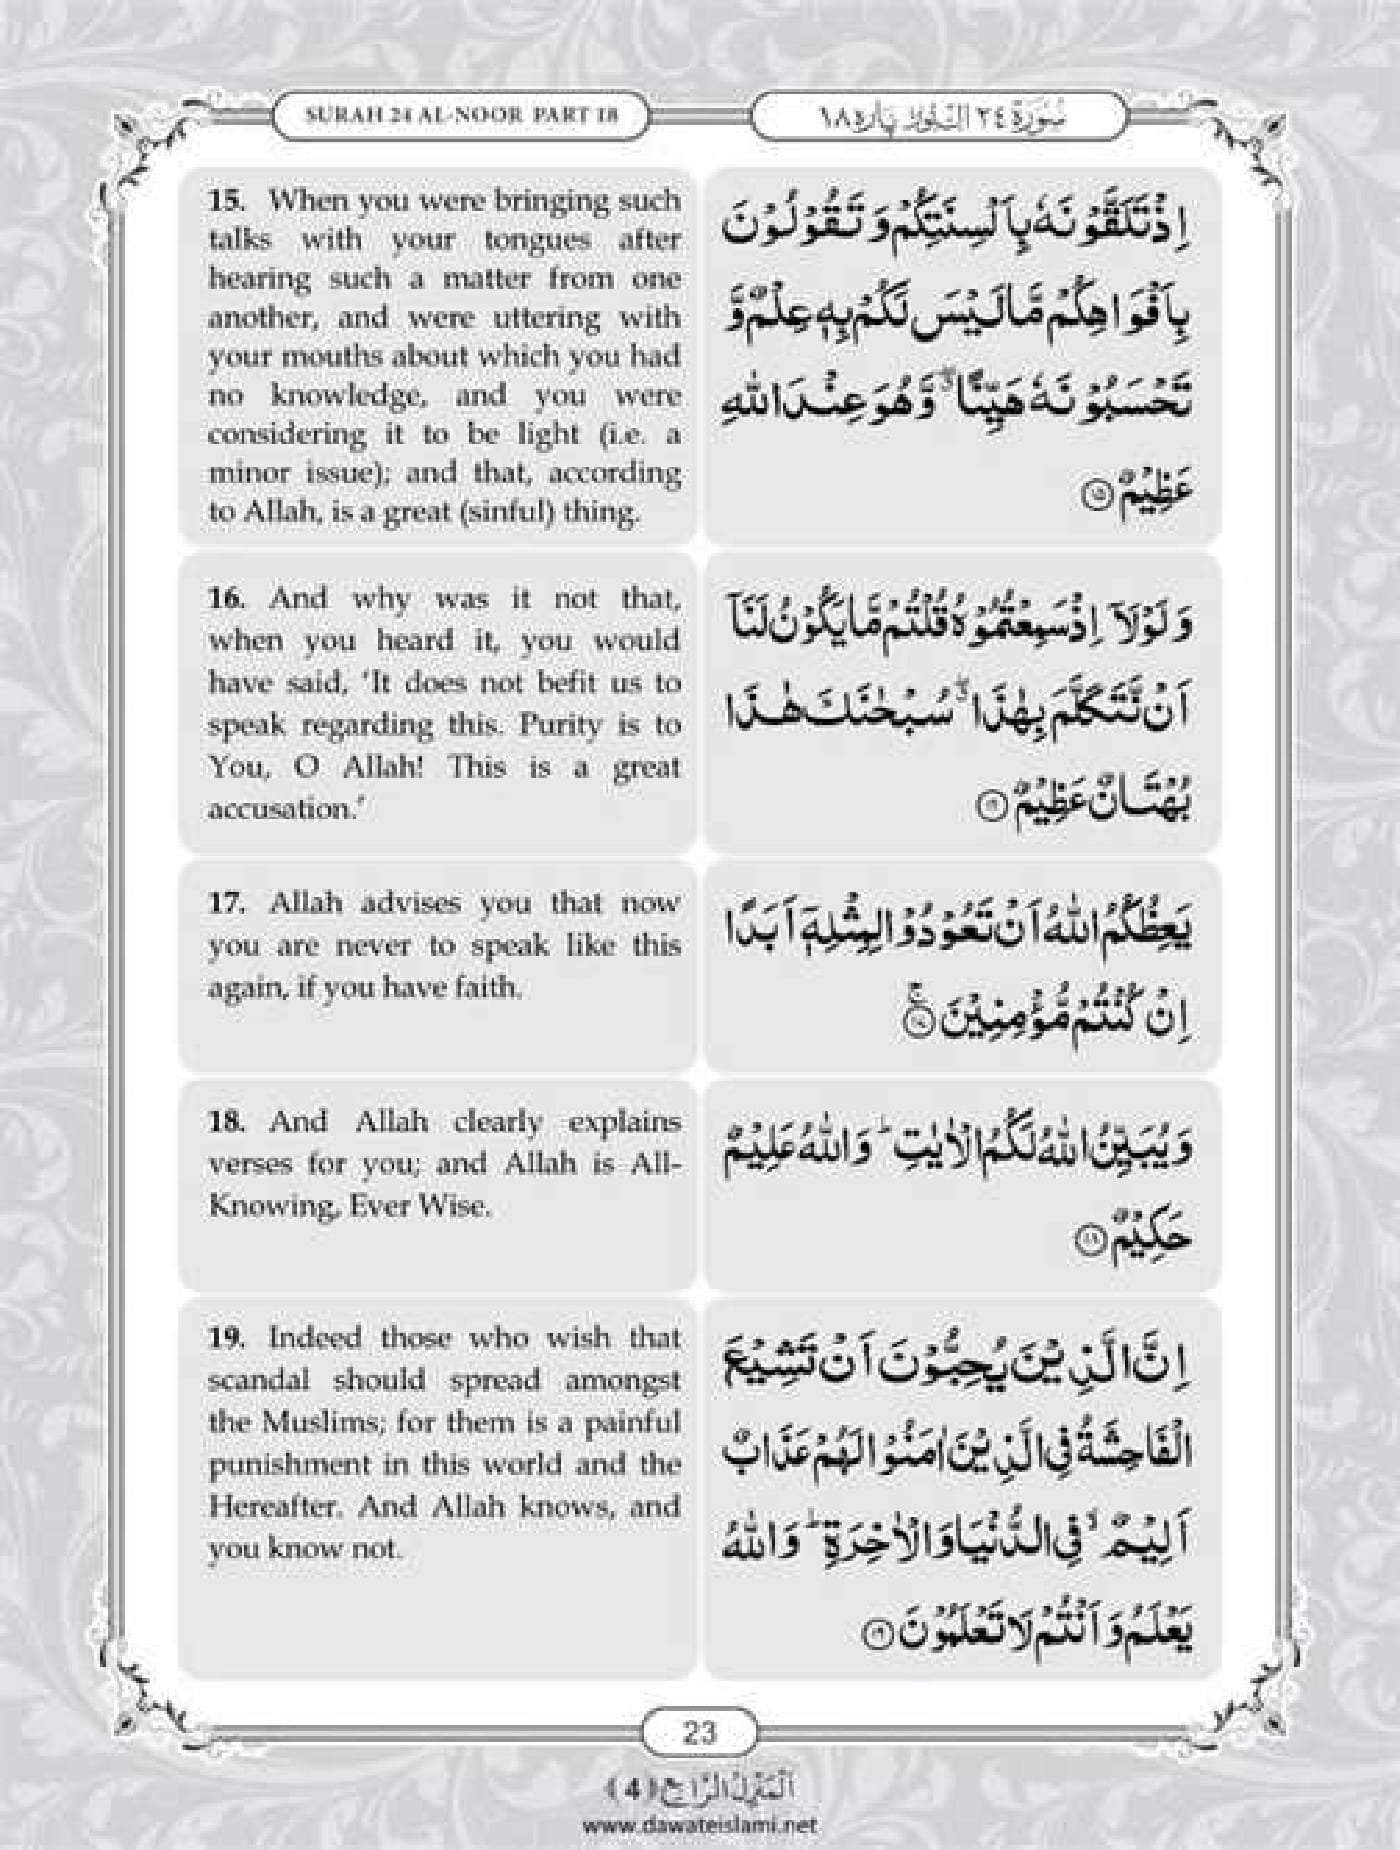 SURAH 24 AL-NOOR PART 18
سُوْرَةُ ٢٤ النُّوْر پَارَه ١٨
15. When you were bringing such
talks with your tongues after
hearing such a matter from one
another, and were uttering with
your mouths about which you had
no knowledge, and you were
considering it to be light (i.e. a
minor issue); and that, according
to Allah, is a great (sinful) thing.
اِذْ تَلَقَّوْنَهٗ بِاَلْسِنَتِكُمْ وَ تَقُوْلُوْنَ
بِاَفْوَاهِكُمْ مَّا لَيْسَ لَكُمْ بِهٖ عِلْمٌ وَّ
تَحْسَبُوْنَهٗ هَيِّنًا ۖۗ وَّ هُوَ عِنْدَ اللّٰهِ
عَظِيْمٌ ۝۱۵
16. And why was it not that,
when you heard it, you would
have said, ‘It does not befit us to
speak regarding this. Purity is to
You, O Allah! This is a great
accusation.’
وَ لَوْلَاۤ اِذْ سَمِعْتُمُوْهُ قُلْتُمْ مَّا يَكُوْنُ لَنَاۤ
اَنْ نَّتَكَلَّمَ بِهٰذَا ۖۗ سُبْحٰنَكَ هٰذَا
بُهْتَانٌ عَظِيْمٌ ۝۱۶
17. Allah advises you that now
you are never to speak like this
again, if you have faith.
يَعِظُكُمُ اللّٰهُ اَنْ تَعُوْدُوْا لِمِثْلِهٖۤ اَبَدًا
اِنْ كُنْتُمْ مُّؤْمِنِيْنَ ۝۱۷ۚ
18. And Allah clearly explains
verses for you; and Allah is All-
Knowing, Ever Wise.
وَ يُبَيِّنُ اللّٰهُ لَكُمُ الْاٰيٰتِ ؕ وَ اللّٰهُ عَلِيْمٌ
حَكِيْمٌ ۝۱۸
19. Indeed those who wish that
scandal should spread amongst
the Muslims; for them is a painful
punishment in this world and the
Hereafter. And Allah knows, and
you know not.
اِنَّ الَّذِيْنَ يُحِبُّوْنَ اَنْ تَشِيْعَ
الْفَاحِشَةُ فِی الَّذِيْنَ اٰمَنُوْا لَهُمْ عَذَابٌ
اَلِيْمٌ ۙ فِی الدُّنْيَا وَ الْاٰخِرَةِ ؕ وَ اللّٰهُ
يَعْلَمُ وَ اَنْتُمْ لَا تَعْلَمُوْنَ ۝۱۹
23
اَلْمَنْزِلُ الرَّابِع ﴿4﴾
www.dawateislami.net